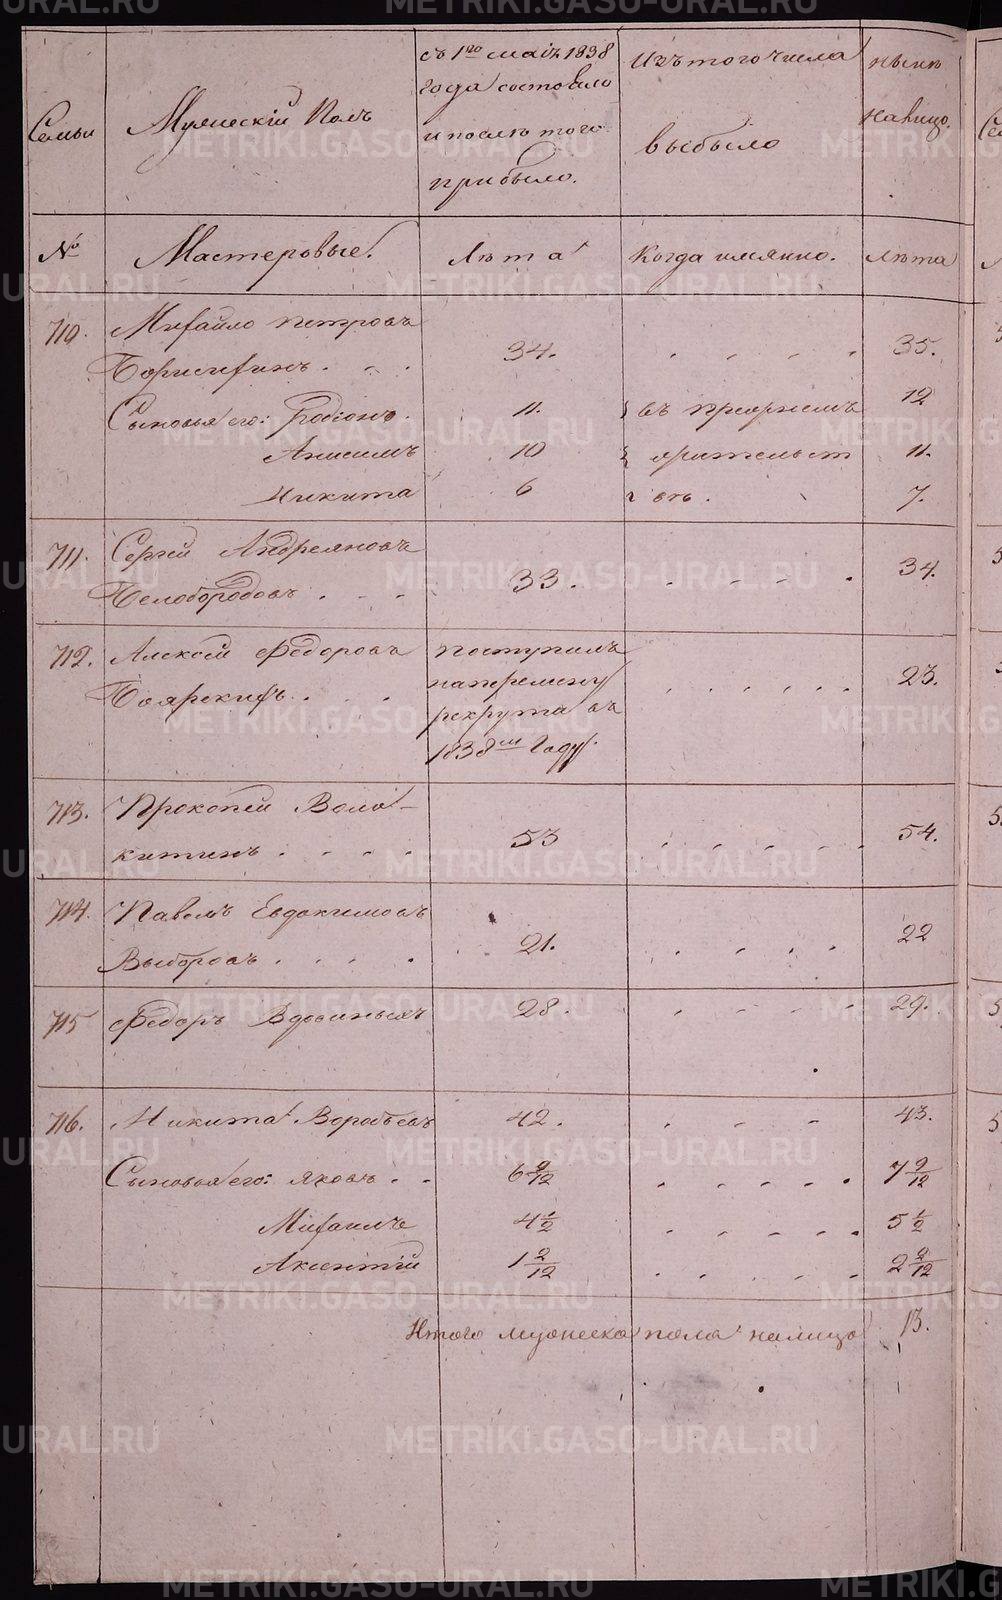 Семьи
Мужескій Полъ
съ 1го маія 1838
года состояло
и послѣ того
прибыло.
Изъ того числа
выбыло
нынѣ
на лицо.
№ Мастеровые. Лѣта Когда имянно. Лѣта
710. Михайло Петровъ
34. 35.
Сыновья его: Родіонъ. 11. въ 12
Анисимъ 10 11.
Никита 6 7.
711. Сергей Андреяновъ
Белобородовъ . . . 33. 34.
712. Алексей Федоровъ поступилъ
Боярскихъ . . . на премену 23.
рекрута въ
1838м Году.
713. Прокопей Воло-
китинъ . . . . 53 54.
714. Павелъ Евдокимовъ
Выборовъ . . . . 21. 22
715 Федоръ Вдовиныхъ 28. 29.
716. Никита Воробьевъ 42. 43.
Сыновья его: Яковъ . . 6 9/12 7 9/12
Михаилъ 4 1/2 5 1/2
Акентій 1 2/12 2 2/12
Итого мужеска пола на лицо 13.
METRIKI.GASO-URAL.RU